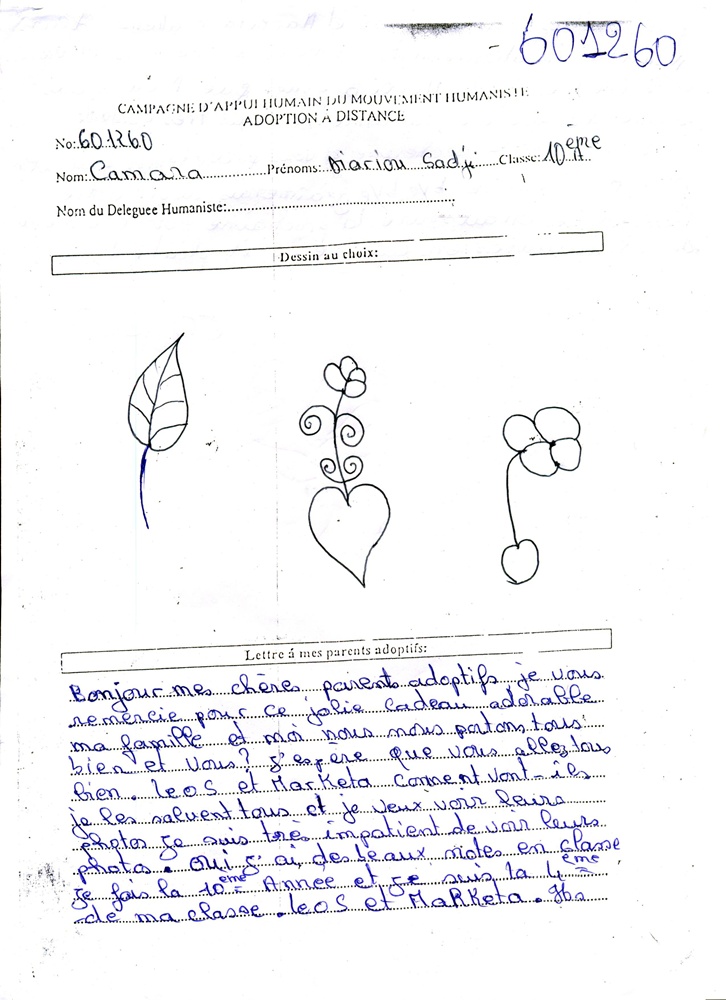 - 601260
CAMPAGNE D'APPUI HUMAIN DU MOUVEMENT HUMANISTE
ADOPTION A DISTANCE
No: 601260
Nom: Camara Prénoms: Diariou Sadji Classe: 10ème
Nom du Deleguee Humaniste:
Dessin au choix:
Lettre á mes parents adoptifs:
Bonjour mes chères parents adoptifs je vous
remercie pour ce jolie Cadeau adorable
ma famille et moi nous nous portons tous
bien et vous? j'espère que vous allez tous
bien. Leos et Marketa Comment vont-ils
je les saluent tous et je veux voir leurs
photos je suis très impatient de voir leurs
photos. Oui j'ai des beaux notes en classe
je fais la 10ème Année et je suis la 4ème
de ma classe. Leos et MaRKeta.